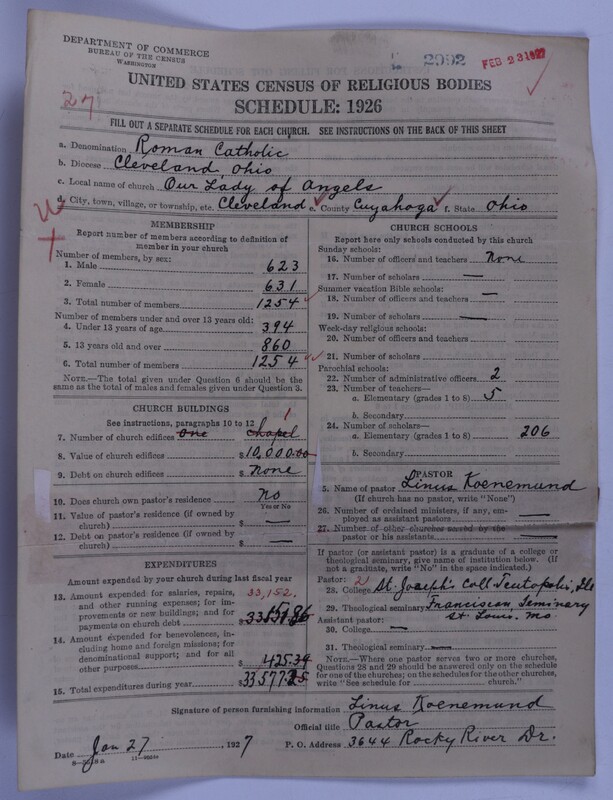 DEPARTMENT OF COMMERCE
BUREAU OF THE CENSUS
WASHINGTON
2992
FEB 23 1927
27
UNITED STATES CENSUS OF RELIGIOUS BODIES
SCHEDULE: 1926
FILL OUT A SEPARATE SCHEDULE FOR EACH CHURCH. SEE INSTRUCTIONS ON THE BACK OF THIS SHEET
a. Denomination Roman Catholic
b. Diocese Cleveland Ohio
c. Local name of church Our Lady of Angels
d. City, town, village, or township, etc. Cleveland e. County Cuyahoga f. State Ohio
MEMBERSHIP
Report number of members according to definition of member in your church
Number of members, by sex:
1. Male 623
2. Female 631
3. Total number of members 1254
Number of members under and over 13 years old:
4. Under 13 years of age 394
5. 13 years old and over 860
6. Total number of members 1254
NOTE.—The total given under Question 6 should be the same as the total of males and females given under Question 3.
CHURCH BUILDINGS
See instructions, paragraphs 10 to 12
1
7. Number of church edifices one chapel
8. Value of church edifices $10,000.00
9. Debt on church edifices $ None
10. Does church own pastor's residence No
Yes or No
11. Value of pastor's residence (if owned by church) $ —
12. Debt on pastor's residence (if owned by church) $ —
EXPENDITURES
Amount expended by your church during last fiscal year
13. Amount expended for salaries, repairs, and other running expenses; for improvements or new buildings; and for payments on church debt
33,152.
14. Amount expended for benevolences, including home and foreign missions; for denominational support; and for all other purposes $ 425.39
15. Total expenditures during year $
CHURCH SCHOOLS
Report here only schools conducted by this church
Sunday schools:
16. Number of officers and teachers None
17. Number of scholars —
Summer vacation Bible schools:
18. Number of officers and teachers —
19. Number of scholars —
Week-day religious schools:
20. Number of officers and teachers
21. Number of scholars
Parochial schools:
22. Number of administrative officers 2
23. Number of teachers—
a. Elementary (grades 1 to 8) 5
b. Secondary
24. Number of scholars—
a. Elementary (grades 1 to 8) 206
b. Secondary
PASTOR
5. Name of pastor Linus Koenemund
(If church has no pastor, write "None")
26. Number of ordained ministers, if any, employed as assistant pastors —
27. Number of other churches served by the pastor or his assistants —
If pastor (or assistant pastor) is a graduate of a college or theological seminary, give name of institution below. (If not a graduate, write "No" in the space indicated.)
Pastor: 2
28. College St. Joseph's Coll Teutopolis, Ill
29. Theological seminary Franciscan Seminary
St. Louis. Mo
Assistant pastor:
30. College —
31. Theological seminary —
NOTE.—Where one pastor serves two or more churches, Questions 28 and 29 should be answered only on the schedule for one of the churches; on the schedules for the other churches, write "See schedule for church."
Signature of person furnishing information Linus Koenemund
Official title Pastor
Date Jan 27, 1927 P. O. Address 3644 Rocky River Dr.